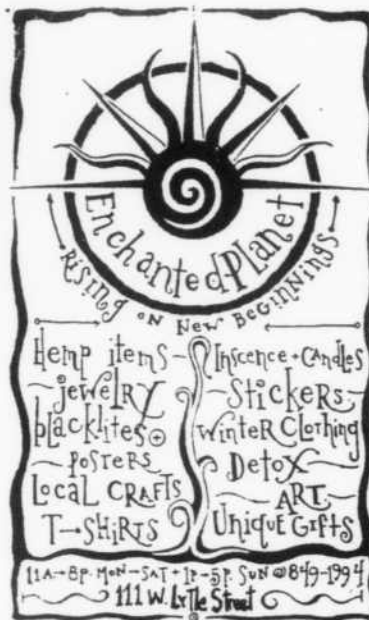 Enchanted Planet
Rising on New Beginnings
Hemp items
jewelry
blacklites
Posters
Local Crafts
T-Shirts
Inscence + Candles
Stickers
Winter Clothing
Detox
ART
Unique Gifts
11A-8P. MON-SAT + 1P-5P. SUN @ 849-1994
111 W. Lytle Street